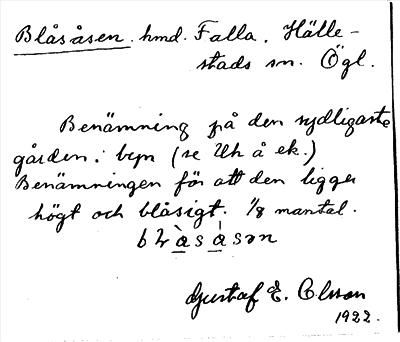 Blåsåsen. hmd. Falla. Hälle-
stads sn. Ögl.
Benämning på den sydligaste
gården i byn (se Uh å ek.)
Benämningen för att den ligger
högt och blåsigt. 1/8 mantal.
Gustaf E. Olsson
1922.